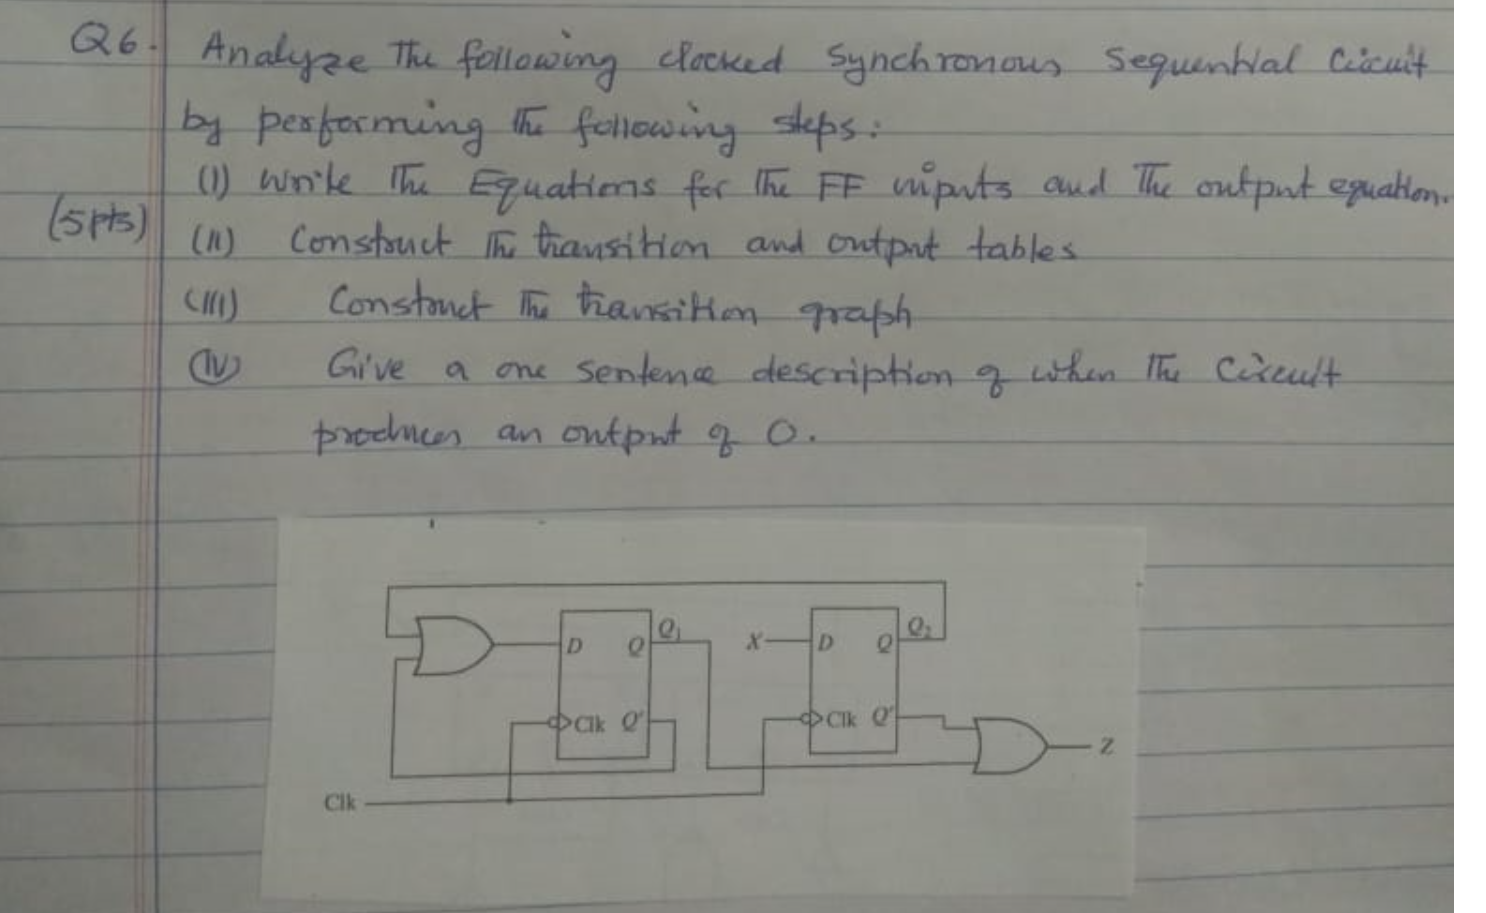 Q6. Analyze the following clocked synchronous sequential circuit
by performing the following steps:
(I) Write the Equations for the FF inputs and the output equation.
(5pts) (II) Construct the transition and output tables
(III) Construct the transition graph
(IV) Give a one sentence description of when the circuit
produces an output of 0.
D Q Q1 X D Q Q2
Clk Q' Clk Q' Z
Clk